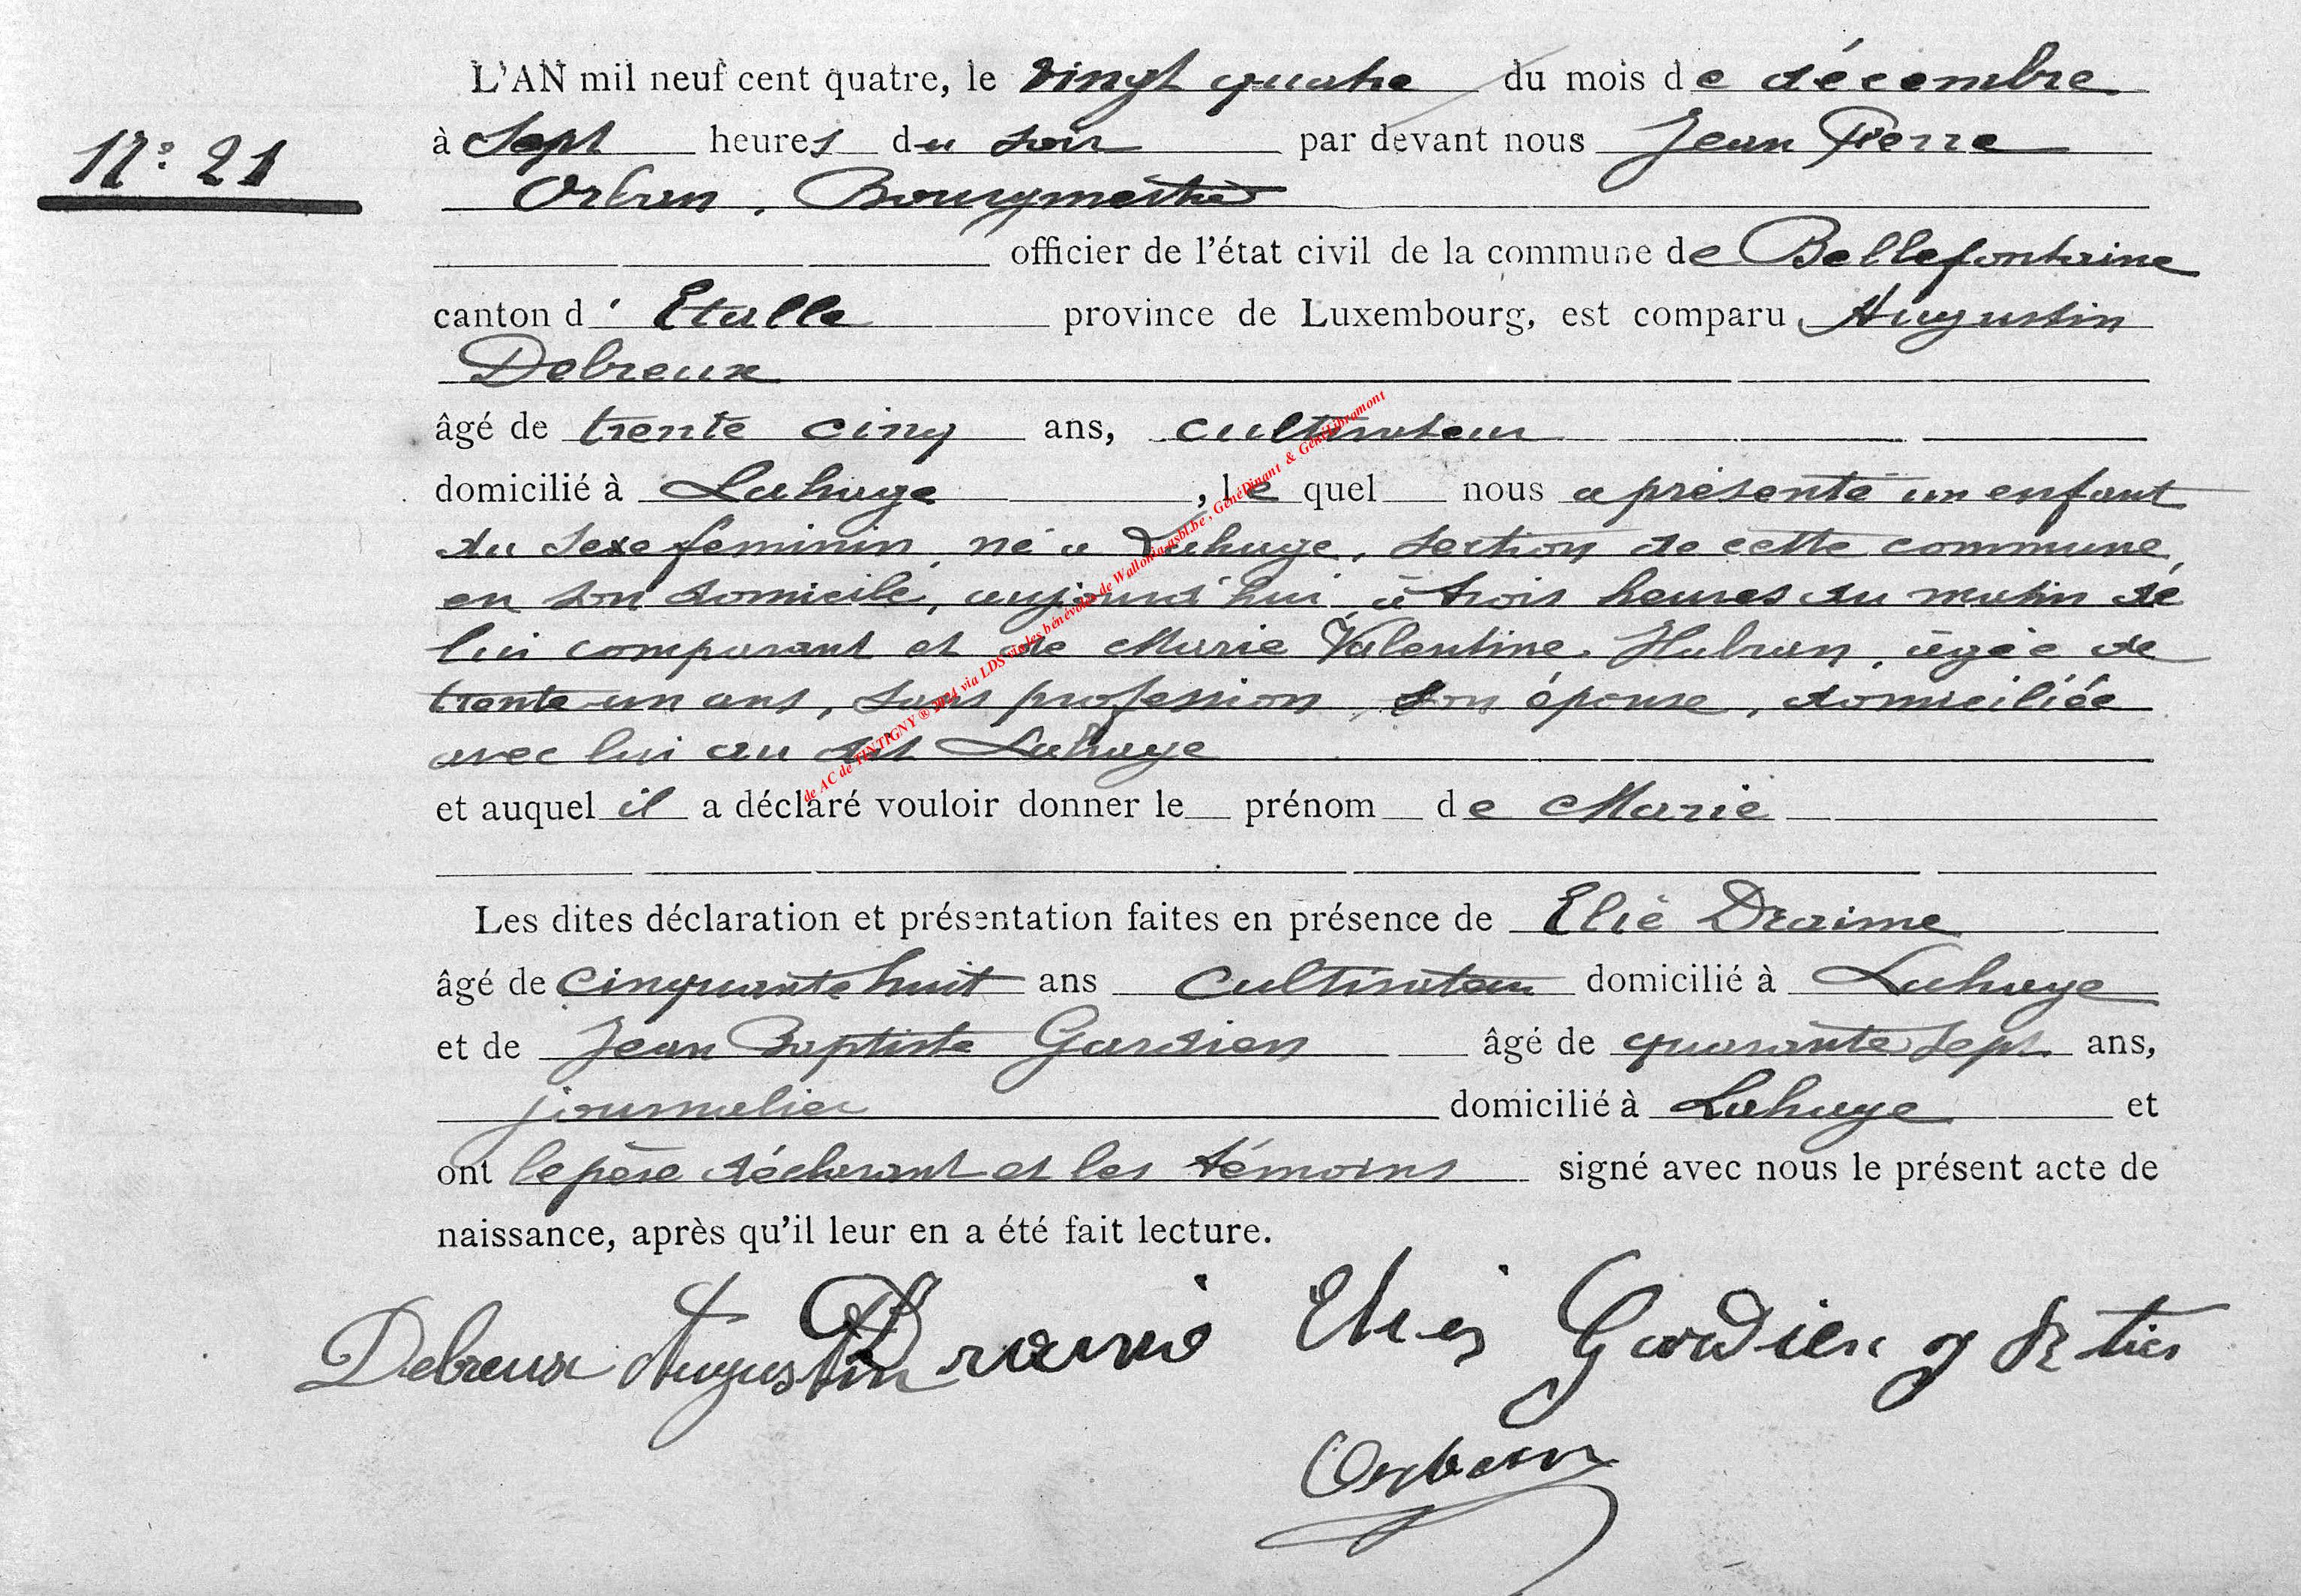 L'AN mil neuf cent quatre, le vingt quatre du mois de décembre
N° 21
à sept heures du soir par devant nous Jean Pierre
Orban, Bourgmestre
officier de l'état civil de la commune de Bellefontaine
canton d' Etalle province de Luxembourg, est comparu Augustin
Debreux
âgé de trente cinq ans, cultivateur
domicilié à Lahage, le quel nous a présenté un enfant
du sexe feminin, né a Lahage, section de cette commune,
en son domicile, aujourd'hui, à trois heures du matin de
lui comparant et de Marie Valentine Hubran, âgée de
trente un ans, sans profession, son épouse, domiciliée
avec lui au dit Lahage
et auquel il a déclaré vouloir donner le prénom de Marie
Les dites déclaration et présentation faites en présence de Elie Draime
âgé de cinquante huit ans cultivateur domicilié à Lahage
et de Jean Baptiste Gardien âgé de quarante sept ans,
journalier domicilié à Lahage et
ont le père déclarant et les témoins signé avec nous le présent acte de
naissance, après qu'il leur en a été fait lecture.
Debreux Augustin Draime Elie Gardien J
Orban
de AC de TINTIGNY ® 2024 via LDS via les bénévoles de Wallonia asbl.be, GénéDinant & GénéLibramont